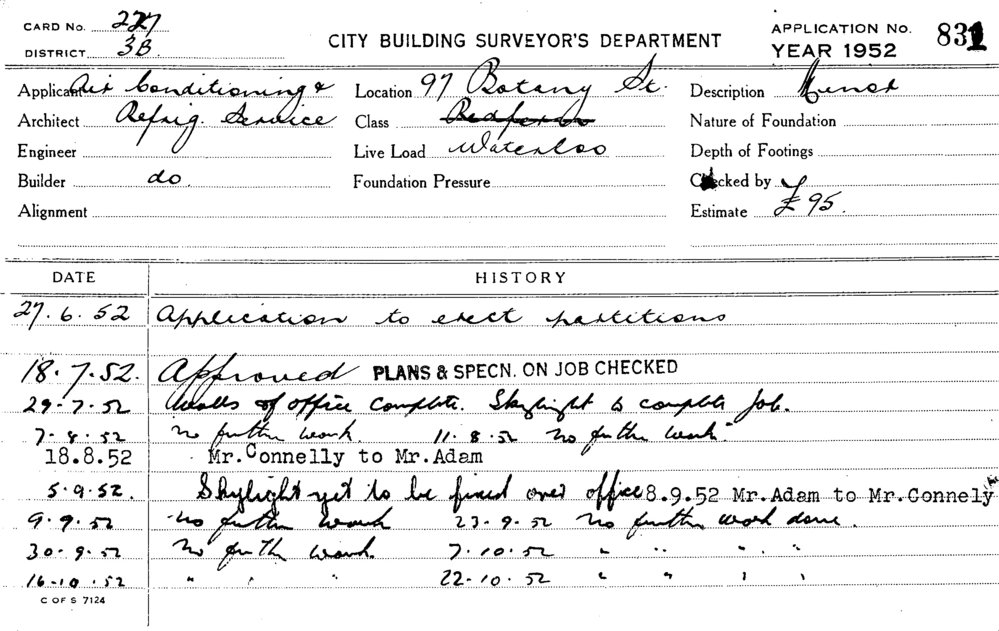 CARD No. 227
DISTRICT 3B
CITY BUILDING SURVEYOR'S DEPARTMENT
APPLICATION No. 831
YEAR 1952
Applicant Air Conditioning & Location 97 Botany St. Description Minor
Architect Refrig. Service Class Redfern Nature of Foundation
Engineer Live Load Waterloo Depth of Footings
Builder do. Foundation Pressure Checked by
Alignment Estimate £95.
DATE HISTORY
27.6.52 Application to erect partitions
18.7.52. Approved PLANS & SPECN. ON JOB CHECKED
29.7.52 Walls of office complete. Skylight to complete job.
7.8.52 No further work. 11.8.52 No further work"
18.8.52 Mr.Connelly to Mr.Adam
5.9.52. Skylight yet to be fixed over office 8.9.52 Mr.Adam to Mr.Connely
9.9.52 No further work 23.9.52 No further work done.
30.9.52 No further work. 7.10.52 " " " "
16.10.52 " " " 22.10.52 " " " "
C OF S 7124